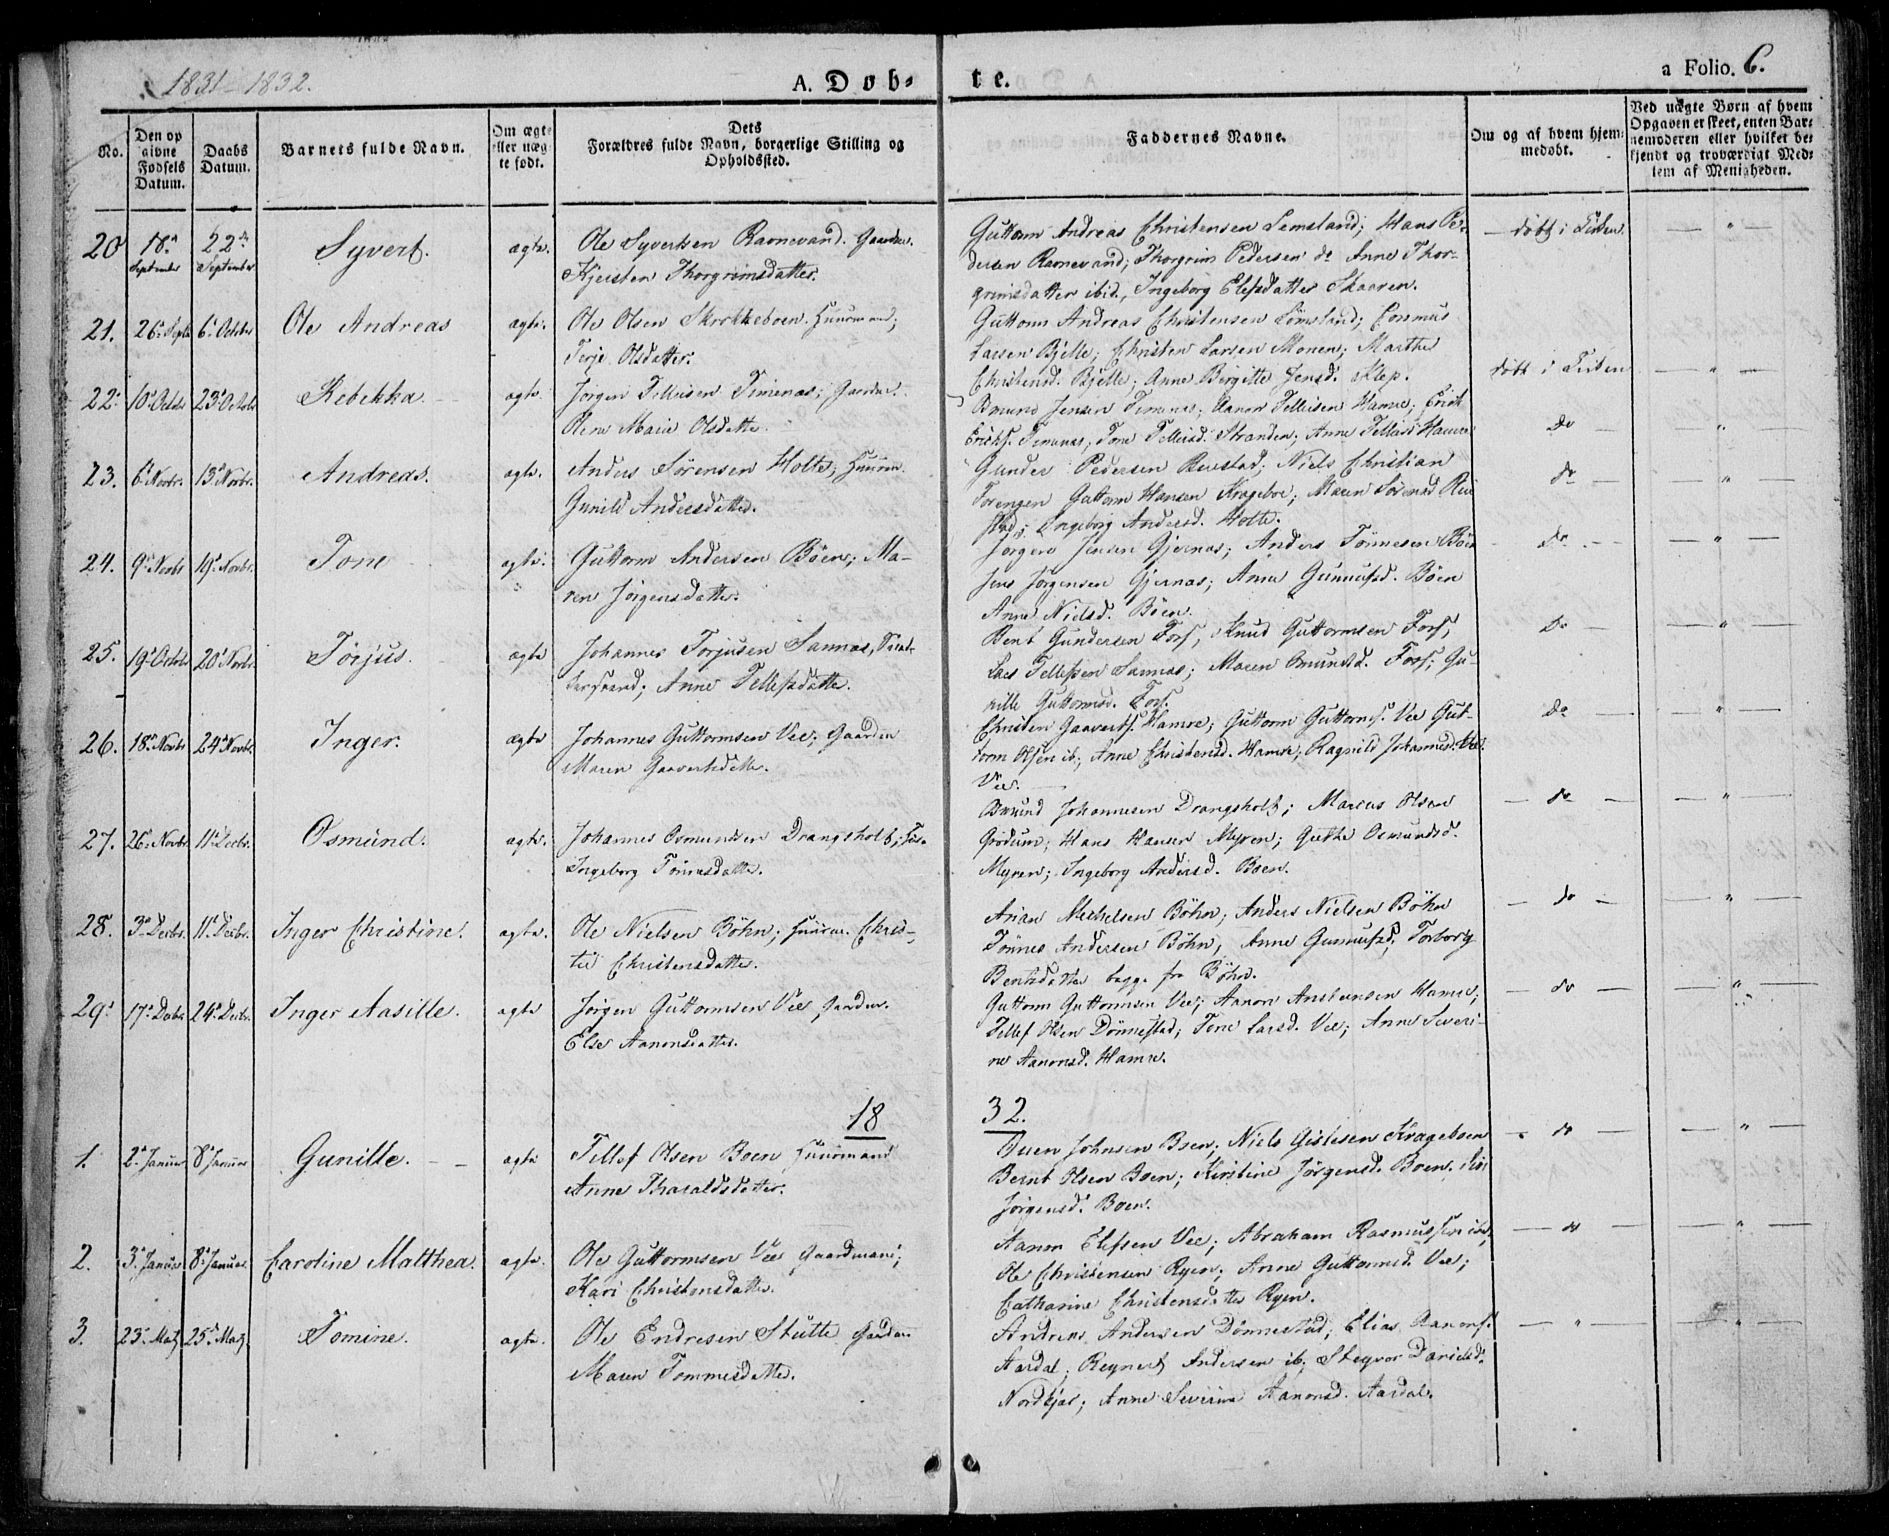 1831-1832.
A. Døb-
te.
a Folio. 6.
No.
Den op
givne
Fødsels
Datum.
Daabs
Datum.
Barnets fulde Navn.
Om ægte
eller uæg
te født.
Dets
Forældres fulde Navn, borgerlige Stilling og
Opholdssted.
Faddernes Navne.
Om og af hvem hjem-
medøbt.
Ved uægte Børn af hvem
Opgaven er skeet, enten Bar-
nemoderen eller hvilket be-
kjendt og troværdigt Med-
lem af Menigheden.
20 18de September 22de September Syvert. ægte. Ole Syvertsen Ravnevand. Gaardm.
Kjersten Thorgrimsdatter.
Guttorm Andreas Christensen Lømsland; Hans Pe-
dersen Ravnevand; Thorgrim Pedersen do Anne Thor-
grimsdatter ibid., Ingeborg Elefsdatter Skaaren.
— døbt i Kirken. — " —
21. 26de Septbr 6te Octobr Ole Andreas ægte. Ole Olsen Skrekkeboen. Huusmand;
Terje Olsdatter.
Guttorm Andreas Christensen Lømsland;
Larsen Bjelle; Christen Larsen Monen; Marthe
Christensd. Bjelle; Anne Birgitte Jensd. Klep.
døbt i Kirken — " —
22. 10de Octobr 23de Octobr Rebekka. ægte. Jørgen Tellefsen Timenæs; Gaardm.
Marie Olsdatter.
Osmund Jensen Timenæs; Aanon Tellefsen Hamre; Erich
Erichs. Timenæs; Tone Tellefsd. Stranden; Anne Tellefsd Hamre
do — " —
23. 6te Novbr. 13de Novbr. Andreas. ægte. Anders Sørensen Holte; Huusm.
Gunild Andersdatter.
Gunder Pedersen Reiestad; Niels Christian
Torengen Guttorm Hansen Krageboe; Maren Sørensd Rei
stad; Ingeborg Andersd. Holte.
do — " —
24. 9de Novbr 19de Novbr. Tone ægte. Guttorm Andersen Böen; Ma-
ren Jørgensdatter.
Jørgen Jensen Gjernæs; Anders Tönnesen Böen
Jens Jørgensen Gjernæs; Anne Gunnufsd. Böen
Anne Nielsd. Böen.
do — " —
25. 19de Octobr 20de Novbr. Torjus. ægte Johannes Torjusen Sannæs,
Anne Tellefsdatter.
Bent Gundersen Fors, Knud Guttormsen Fors,
Lars Tellefsen Sannæs; Maren Omundsd. Fors; Gu-
nille Guttormsd. Fors.
do — " —
26. 18de Novbr 24de Novbr Inger. ægte Johannes Guttormsen Vee; Gaardm
Maren Gaavertsdatter.
Christen Gaaverts. Hamre; Guttorm Guttorms. Vee Gut-
torm Olsen ib; Anne Christensd. Hamre; Ragnild Johannesd.
Vee.
do — " —
27. 26de Novbr. 11te Decbr. Osmund. ægte. Johannes Osmundsen Drangsholt;
Ingeborg Tönnesdatter.
Osmund Johannesen Drangsholt; Marcus Olsen
Grödum; Hans Hansen Myren; Guthe Osmundsd.
Myren; Ingeborg Andersd. Boen.
— do — — " —
28. 3de Decbr. 11te Decbr. Inger Christine. ægte. Ole Nielsen Böhn; Huusm. Chris-
ti Christensdatter.
Arian Michelsen Böhn; Anders Nielsen Böhn
Tönnes Andersen Böhn, Anne Gunnufsd, Torborg
Bentsdatter begge fra Böhn.
— do — — " —
29. 17de Decbr 24de Decbr. Inger Aasille. ægte Jørgen Guttormsen Vee Gaardm.
Else Aanonsdatter.
Guttorm Guttormsen Vee; Aanon Anstensen Hamre;
Tellef Olsen Dönnestad; Tone Larsd. Vee; Anne Severi-
ne Aanonsd. Hamre.
— do — — " —
18 32.
1. 2de Januar 8de Januar Gunille. ægte Tellef Olsen Boen Huusmand
Anne Tharaldsdatter.
Buen Johnsen Boen; Niels Gislesen Krageboen
Bernt Olsen Boen; Kirstine Jørgensd. Boen.
Jörgensd. Boen.
— do — — " —
2. 3de Januar 8de Januar. Caroline Matthea. ægte. Ole Guttormsen Vee Gaardmand;
Kari Christensdatter.
Aanon Elefsen Vee; Abraham Rasmussen ibd;
Ole Christensen Ryen; Anne Guttormsd. Vee;
Catharine Christensdatter Ryen.
— do — — " —
3. 23de Matz 25de Matz. Tomine. ægte. Ole Endresen Stutte Gaardm.
Maren Tommesdatter.
Andreas Andersen Dönnestad; Elias Aanons.
Aardal; Reynert Andersen ib; Siegvor Danielsd.
Nordkjær; Anne Severine Aanonsd. Aardal.
— " — — " —